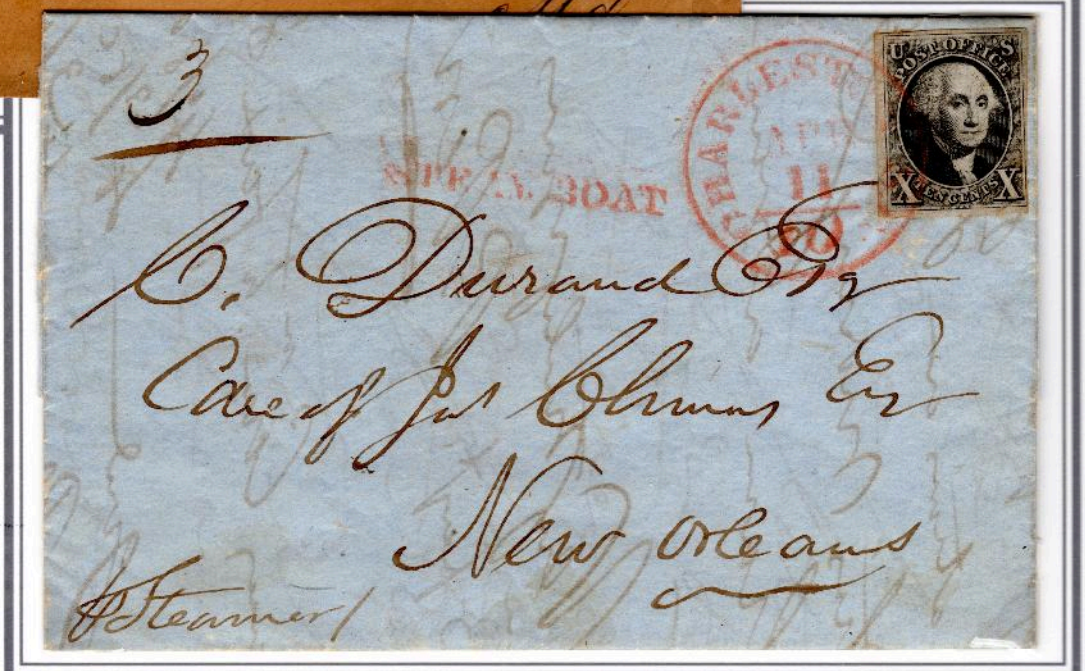 3
STEAM BOAT
CHARLEST
APR
11
10
U S
POST OFFICE
X TEN CENTS X
C. Durand Esq
Care of Jas Esq
New Orleans
Steamer